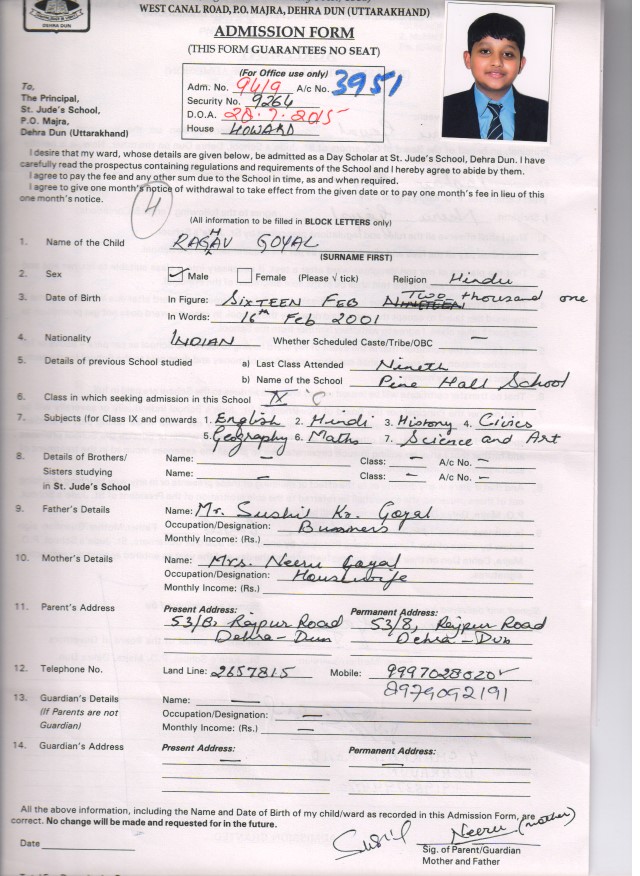 DEHRA DUN
WEST CANAL ROAD, P.O. MAJRA, DEHRA DUN (UTTARAKHAND)
ADMISSION FORM
(THIS FORM GUARANTEES NO SEAT)
(For Office use only)
Adm. No. 9419 A/c No. 3951
Security No. 9264
D.O.A. 28.7.2015
House HOWARD
To,
The Principal,
St. Jude's School,
P.O. Majra,
Dehra Dun (Uttarakhand)
I desire that my ward, whose details are given below, be admitted as a Day Scholar at St. Jude's School, Dehra Dun. I have
carefully read the prospectus containing regulations and requirements of the School and I hereby agree to abide by them.
I agree to pay the fee and any other sum due to the School in time, as and when required.
I agree to give one month's notice of withdrawal to take effect from the given date or to pay one month's fee in lieu of this
one month's notice.
4
(All information to be filled in BLOCK LETTERS only)
1. Name of the Child RAGHAV GOYAL
(SURNAME FIRST)
2. Sex ✓ Male Female (Please √ tick) Religion Hindu
3. Date of Birth In Figure: SIXTEEN FEB NINETEEN TWO thousand one
In Words: 16th Feb 2001
4. Nationality INDIAN Whether Scheduled Caste/Tribe/OBC —
5. Details of previous School studied a) Last Class Attended Nineth
b) Name of the School Pine Hall School
6. Class in which seeking admission in this School IX 'C
7. Subjects (for Class IX and onwards 1. English 2. Hindi 3. History 4. Civics
5. Geography 6. Maths 7. Science and Art
8. Details of Brothers/ Name: — Class: — A/c No. —
Sisters studying Name: — Class: — A/c No. —
in St. Jude's School
9. Father's Details Name: Mr. Sushil Kr. Goyal
Occupation/Designation: Bussiness
Monthly Income: (Rs.)
10. Mother's Details Name: Mrs. Neeru Goyal
Occupation/Designation: Housewife
Monthly Income: (Rs.)
11. Parent's Address Present Address: Permanent Address:
53/B, Rajpur Road 53/B, Rajpur Road
Dehra-Dun Dehra-Dun
12. Telephone No. Land Line: 2657815 Mobile: 9997028020
8979092191
13. Guardian's Details Name: —
(If Parents are not Occupation/Designation: —
Guardian) Monthly Income: (Rs.) —
14. Guardian's Address Present Address: Permanent Address:
— —
All the above information, including the Name and Date of Birth of my child/ward as recorded in this Admission Form, are
correct. No change will be made and requested for in the future.
Sushil Neeru (mother)
Date
Sig. of Parent/Guardian
Mother and Father